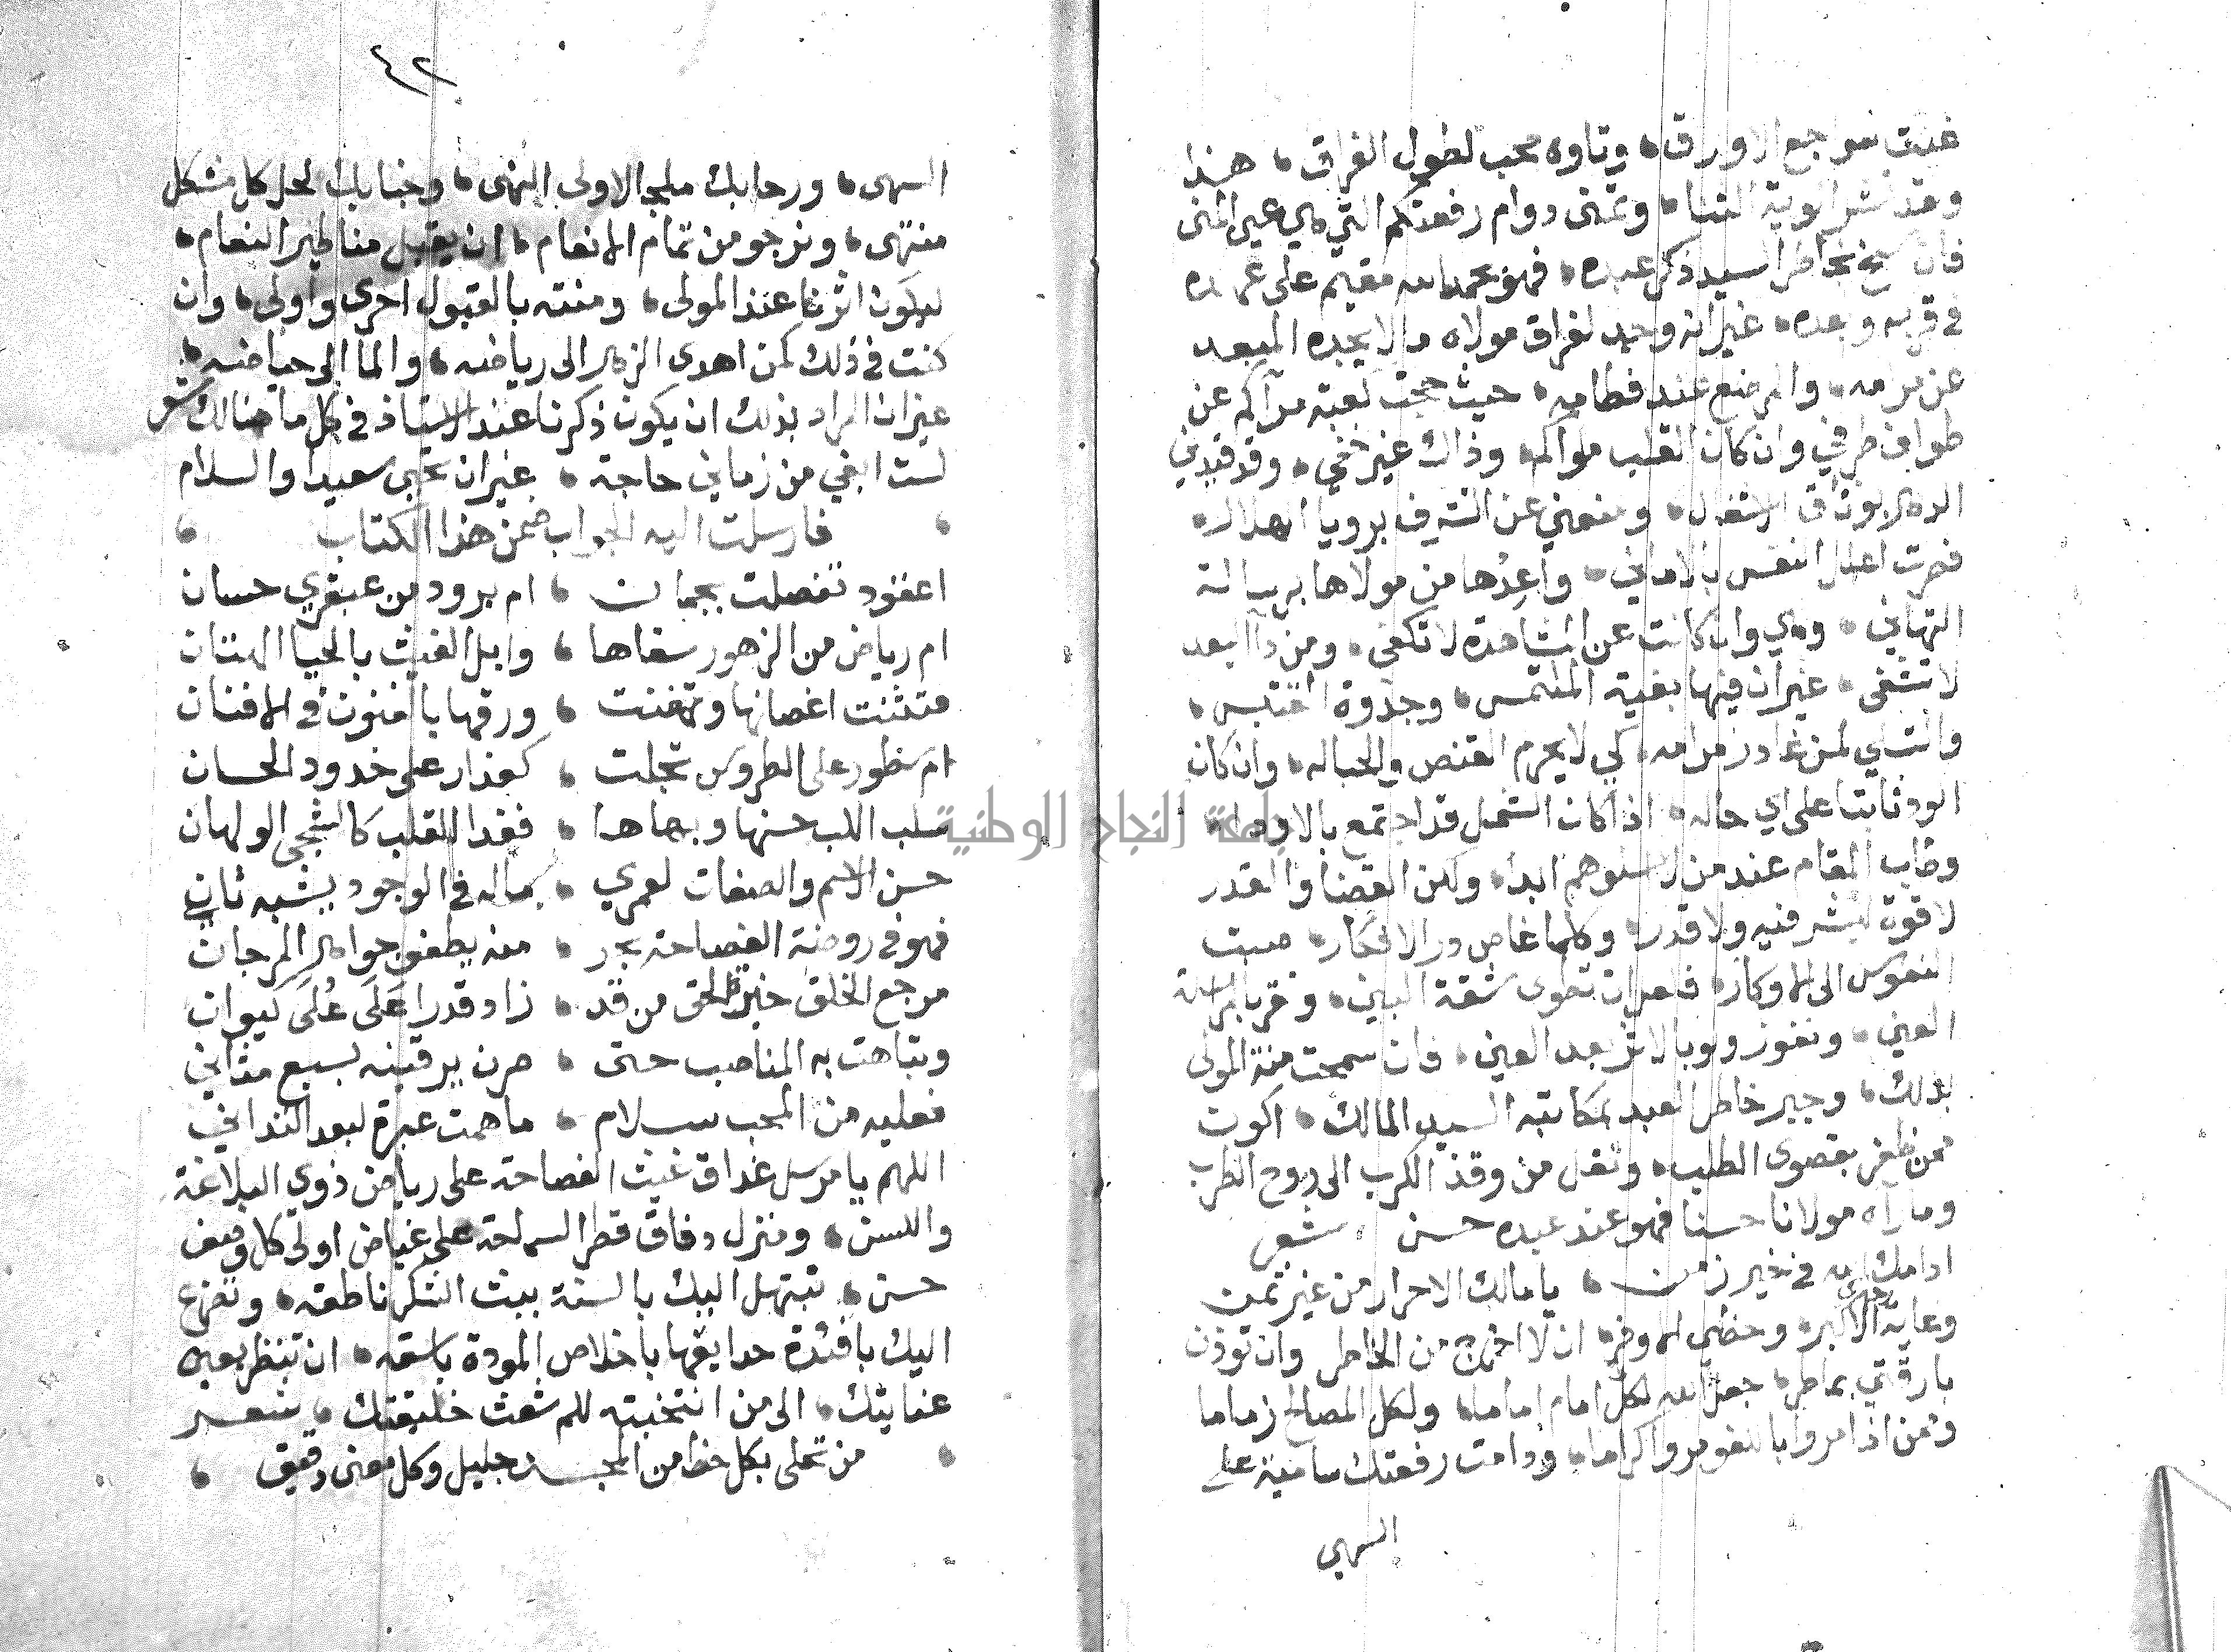 غنت سواجع الاوراق، وتاوه محب لطول الفراق، هذا
وقد نشر الوية الثنا، وتمنى دوام رفعتكم التي هي عين المنى
فان سنح بخاطر السيد ذكر عبده، فهو بحمد الله مقيم على عهده
في قربه وبعده، غير انه وجد لفراق مولاه ما لا يجده المبعد
عن مرامه، والمرضع عند فطامه، حيث حجبت كعبة مرآكم عن
طواف طرفي وان كان القلب مواكم، وذاك غير خفي، وقد قيدني
الدهر بوثاق الاشغال، ومنعني عن التشرف برويا الهلال
فصرت اعلل النفس بالاماني، واعدها من مولاها برسالة
التهاني، وهي وان كانت عن المشاهدة لا تكفي، ومن دآ البعد
لا تشفي، غير ان فيها بغية الملتمس، وجذوة المقتبس،
والتسلي لمن غادر مرامه، كي لا يحرم القنص والحباله، وان كان
الود ثابتا على اي حاله، اذا كان الشمل قد اجتمع بالاوداء
وطاب المقام عند من لا سلوهم ابدا، ولكن القضا والقدر
لا قوة لبشر فيه ولا قدر، وكلما غاص در الافكار، صبت
النفوس الى الاوكار، فلعل ان تطوى شقة البين، وتقر بالرسالة
العين، ونفوز ولو بالاثر بعد العين، فان سمحت منة المولى
بذلك، وجبر خاطر العبد بمكاتبة السيد المالك، اكون
ممن ظفر بقصوى الطلب، ونقل من وقذ الكرب الى روح الطرب
وما رآه مولانا حسنا فهو عند عبده حسن، شعر
ادامك الله في خير زمن، يا مالك الاحرار من غير ثمن
وغاية الاكبر وحظي الاوفر، ان لا اخرج من الخاطر وان تؤذن
بارقتي بماطر، جعل الله لكل امام اماما، ولكل المصالح زماما
وممن اذا مروا باللغو مروا كراما، ودامت رفعتك سامية على
السهى
٤٢
السهى، ورحابك ملجا لاولى النهى، وجنابك لحل كل مشكل
منتهى، ونرجو من تمام الانعام، ان يقبل منا طير النعام،
ليكون اثرنا عند المولى، ومنته بالقبول احرى واولى، وان
كنت في ذلك كمن اهدى الزهر الى رياضه، والما الى حياضه،
غير ان المراد بذلك ان يكون ذكرنا عند الاستاذ في كل ما هنالك شعر
لست ابغي من زماني حاجة، غير ان تحيى سعيدا والسلام
، فارسلت اليه الجواب ضمن هذا الكتاب ،
اعقود تفصلت بجمان ، ام برود من عبقري حسان
ام رياض من الزهور سقاها ، وابل الغيث بالحيا الهتان
فتثنت اغصانها وتغنت ، ورقها بالفنون في الافنان
ام سطور على الطروس تجلت ، كعذار على خدود الحسان
سلب اللب حسنها وبهاها ، فغدا القلب كالشجى الولهان
حسن الاسم والصفات لعمري ، ماله في الوجود يشبه ثاني
فهو في روضة الفصاحة بحر ، منه يطفو جواهر المرجان
مرجع الخلق خيرة الحق من قد ، زاد قدرا على علي كيوان
وتباهت به المناصب حتى ، صرن يرقينه بسبع مثاني
فعليه من المحب سلام ، ما همت عبرة لبعد التداني
اللهم يا مرسل غداق غيث الفصاحة على رياض ذوي البلاغة
واللسن، ومنزل دفاق قطر السماحة على غياض اولى كل وصف
حسن، نبتهل اليك بالسنة ببث الشكر ناطقه، ونضرع
اليك بافئدة حدايقها باخلاص المودة باسقه، ان تنظر بعين
عنايتك، الى من انتخبته للم شعث خليقتك، شعر
، من تحلى بكل حظ من المجد جليل وكل معنى دقيق ،
جامعة النجاح الوطنية